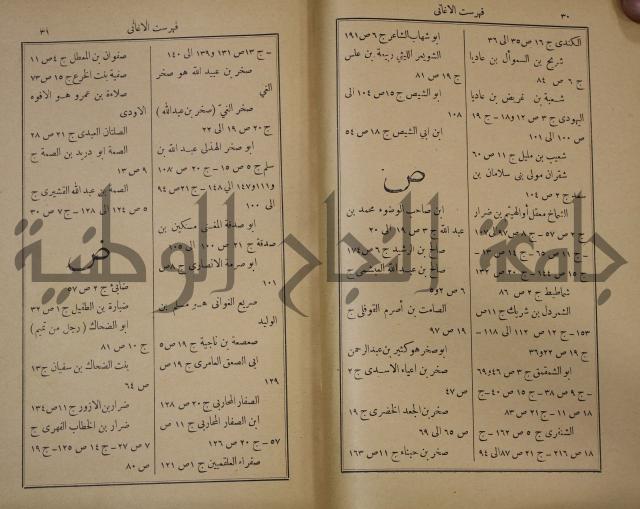 ٣٠ فهرست الاغانى
الكندى ج ١٦ ص ٣٥ الى ٣٦
شريح بن السموأل بن عاديا
ج ٦ ص ٨٤
شعبة بن غريض بن عاديا
اليهودى ج ٣ ص ١٢ و١٨ - ج ١٩
ص ١٠٠ الى ١٠١
شعيب بن مليل ج ١١ ص ٦٠
شقران مولى بنى سلامان بن
سعد ج ٢ ص ١٠٤
الشماخ معقل أو الهيثم بن ضرار
ج ٢ ص ٥٧ - ج ٨ ص ٩٧ الى ١٠٧
- ج ١١ ص ٦٥ - ج ١٤ ص ١٣ -
ج ١٥ ص ١٤٤ - ج ٢٠ ص ١٣٢
شماطيط ج ٢ ص ٨٦
الشمردل بن شريك ج ١١ ص
١٥٣ - ج ١٢ ص ١١٢ الى ١١٨ -
ج ١٩ ص ٢٢ و٣٦
ابو الشمقمق ج ٣ ص ٤٦ و٦٩
- ج ٩ ص ٣٨ - ج ١٥ ص ٤٠ - ج
١٨ ص ١١ - ج ٢١ ص ٨٣
الشنفرى ج ٥ ص ١٦٢ - ج
١٨ ص ٢١٦ - ج ٢١ ص ٨٧ الى ٩٤
ابو شهاب الشاعر ج ٦ ص ١٩١
الشويعر الليثى ربيعة بن علس
ج ١٩ ص ٨١
ابو الشيص ج ١٥ ص ١٠٤ الى
١٠٨
ابن ابى الشيص ج ١٨ ص ٥٤
ص
ابن صاحب الوضوء محمد بن
عبد الله ج ٣ ص ١٩ الى ٢٠
صالح بن الرشيد ج ٦ ص ١٧٤
صالح بن عبد الله العبشمى ج
٦ ص ٢ و٥
الصامت بن أصرم القوفلى ج
١٩ ص ٩٧
ابو صخر هو كثير بن عبد الرحمن
صخر بن اعياء الاسدى ج ٢
ص ٤٧
صخر بن الجعد الخضرى ج ١٩
ص ٦٥ الى ٦٩
صخر بن حبناء ج ١١ ص ١٦٣
فهرست الاغانى ٣١
- ج ١٣ ص ١٣١ و١٣٩ الى ١٤٠
صخر بن عبيد الله هو صخر
الغي
صخر الغيّ (صخر بن عبدالله)
ج ٢٠ ص ١٩ الى ٢٢
ابو صخر الهذلى عبد الله بن
سلم ج ٥ ص ١٥ - ج ٢٠ ص ١٠٨
و١١١ و١٤٧ الى ١٤٨ - ج ٢١ ص ٩٤
الى ١٠٠
ابو صدقة المغنى مسكين بن
صدقة ج ٢١ ص ١٠٠ الى ١٠٥
ابو صرمة الانصارى ج ٨ ص
١٠١
صريع الغوانى هو مسلم بن
الوليد
صعصعة بن ناجية ج ١٩ ص ٥
ابى الصعق العامرى ج ١٩ ص
١٢٩
الصفار المحاربى ج ٢٠ ص ١٢٨
ابن الصفار المحاربى ج ١١ ص
٥٧ - ج ٢٠ ص ١٢٦
صفراء العلقميين ج ١ ص ١٢١
صفوان بن المعطل ج ٤ ص ١١
صفية بنت الخرع ج ١٥ ص ٧٣
صلاءة بن عمرو هو الافوه
الاودى
الصلتان العبدى ج ٢١ ص ٢٨
الصمة ابو دريد بن الصمة ج
٩ ص ١٣
الصمة بن عبد الله القشيرى ج
٥ ص ١٢٤ الى ١٢٨ - ج ٧ ص ٣٠
ض
ضابئ ج ٢ ص ٥٧
ضبارة بن الطفيل ج ١ ص ٣٢
ابو الضحاك (رجل من تميم)
ج ١٠ ص ٨١
بنت الضحاك بن سفيان ج ١٣
ص ٦٤
ضرار بن الازور ج ١١ ص ١٣٤
ضرار بن الخطاب الفهرى ج
٧ ص ٢٧ - ج ١٤ ص ١٢٥ - ج ١٩
ص ٨٠
جامعة النجاح الوطنية